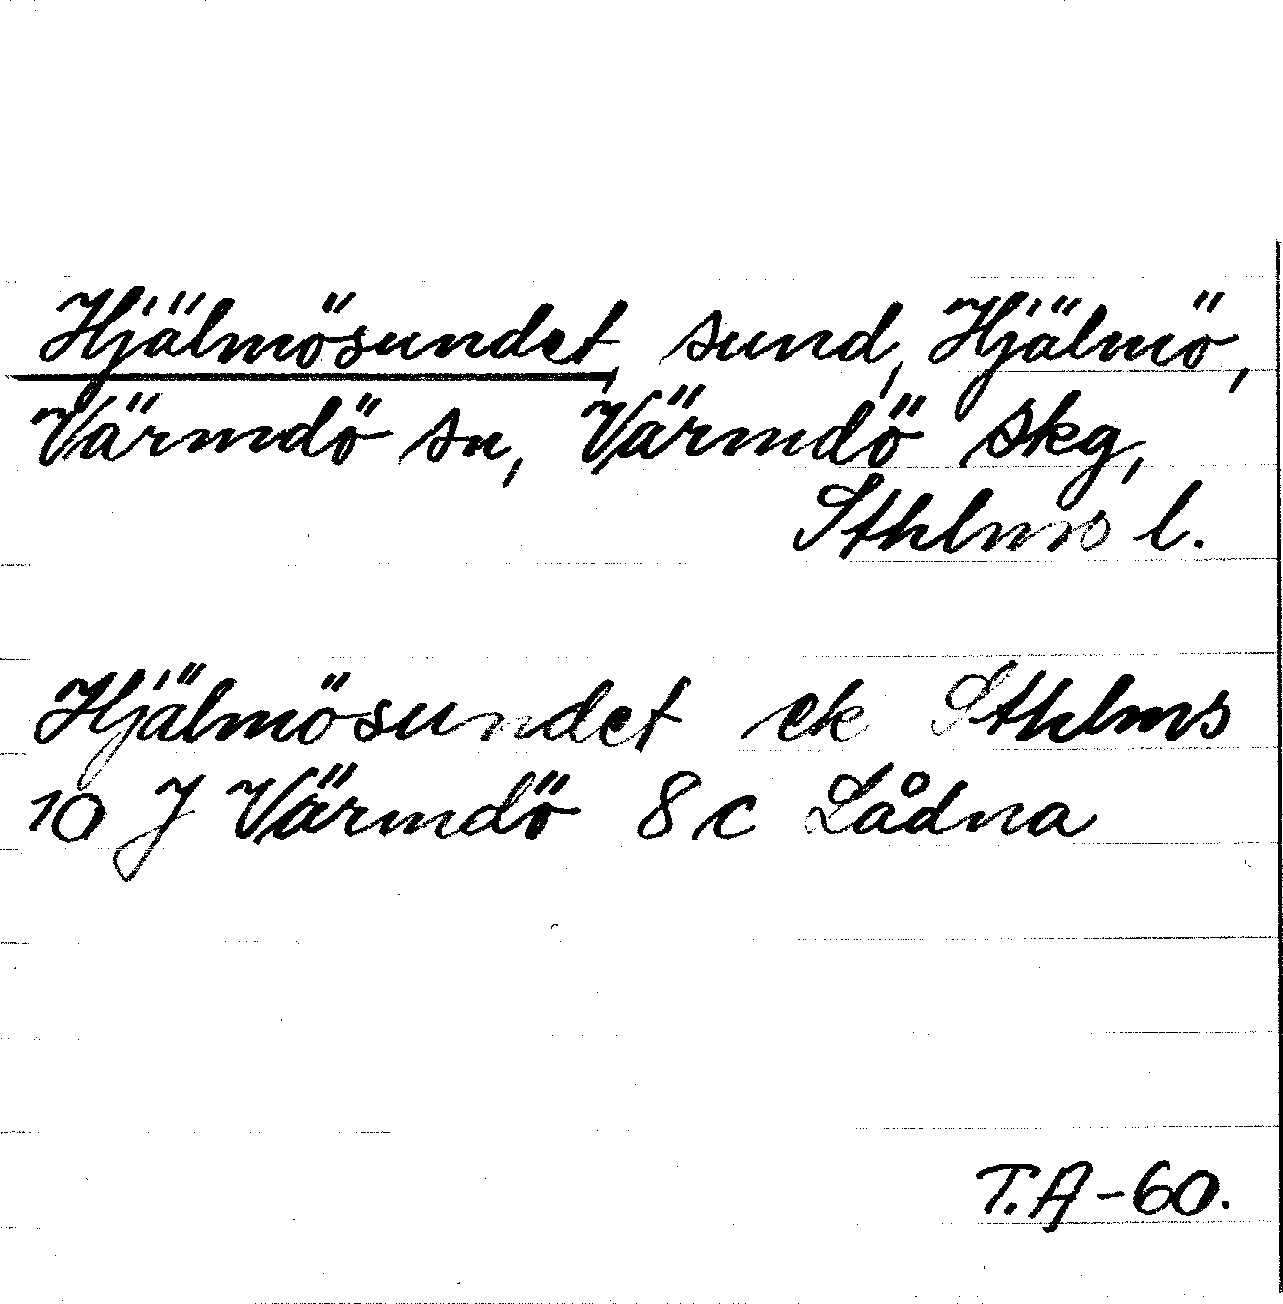 Hjälmösundet, sund, Hjälmö,
Värmdö sn, Värmdö skg,
Sthlms l.
Hjälmösundet ek Sthlms
10 J Värmdö 8 c Lådna
T.A-60.